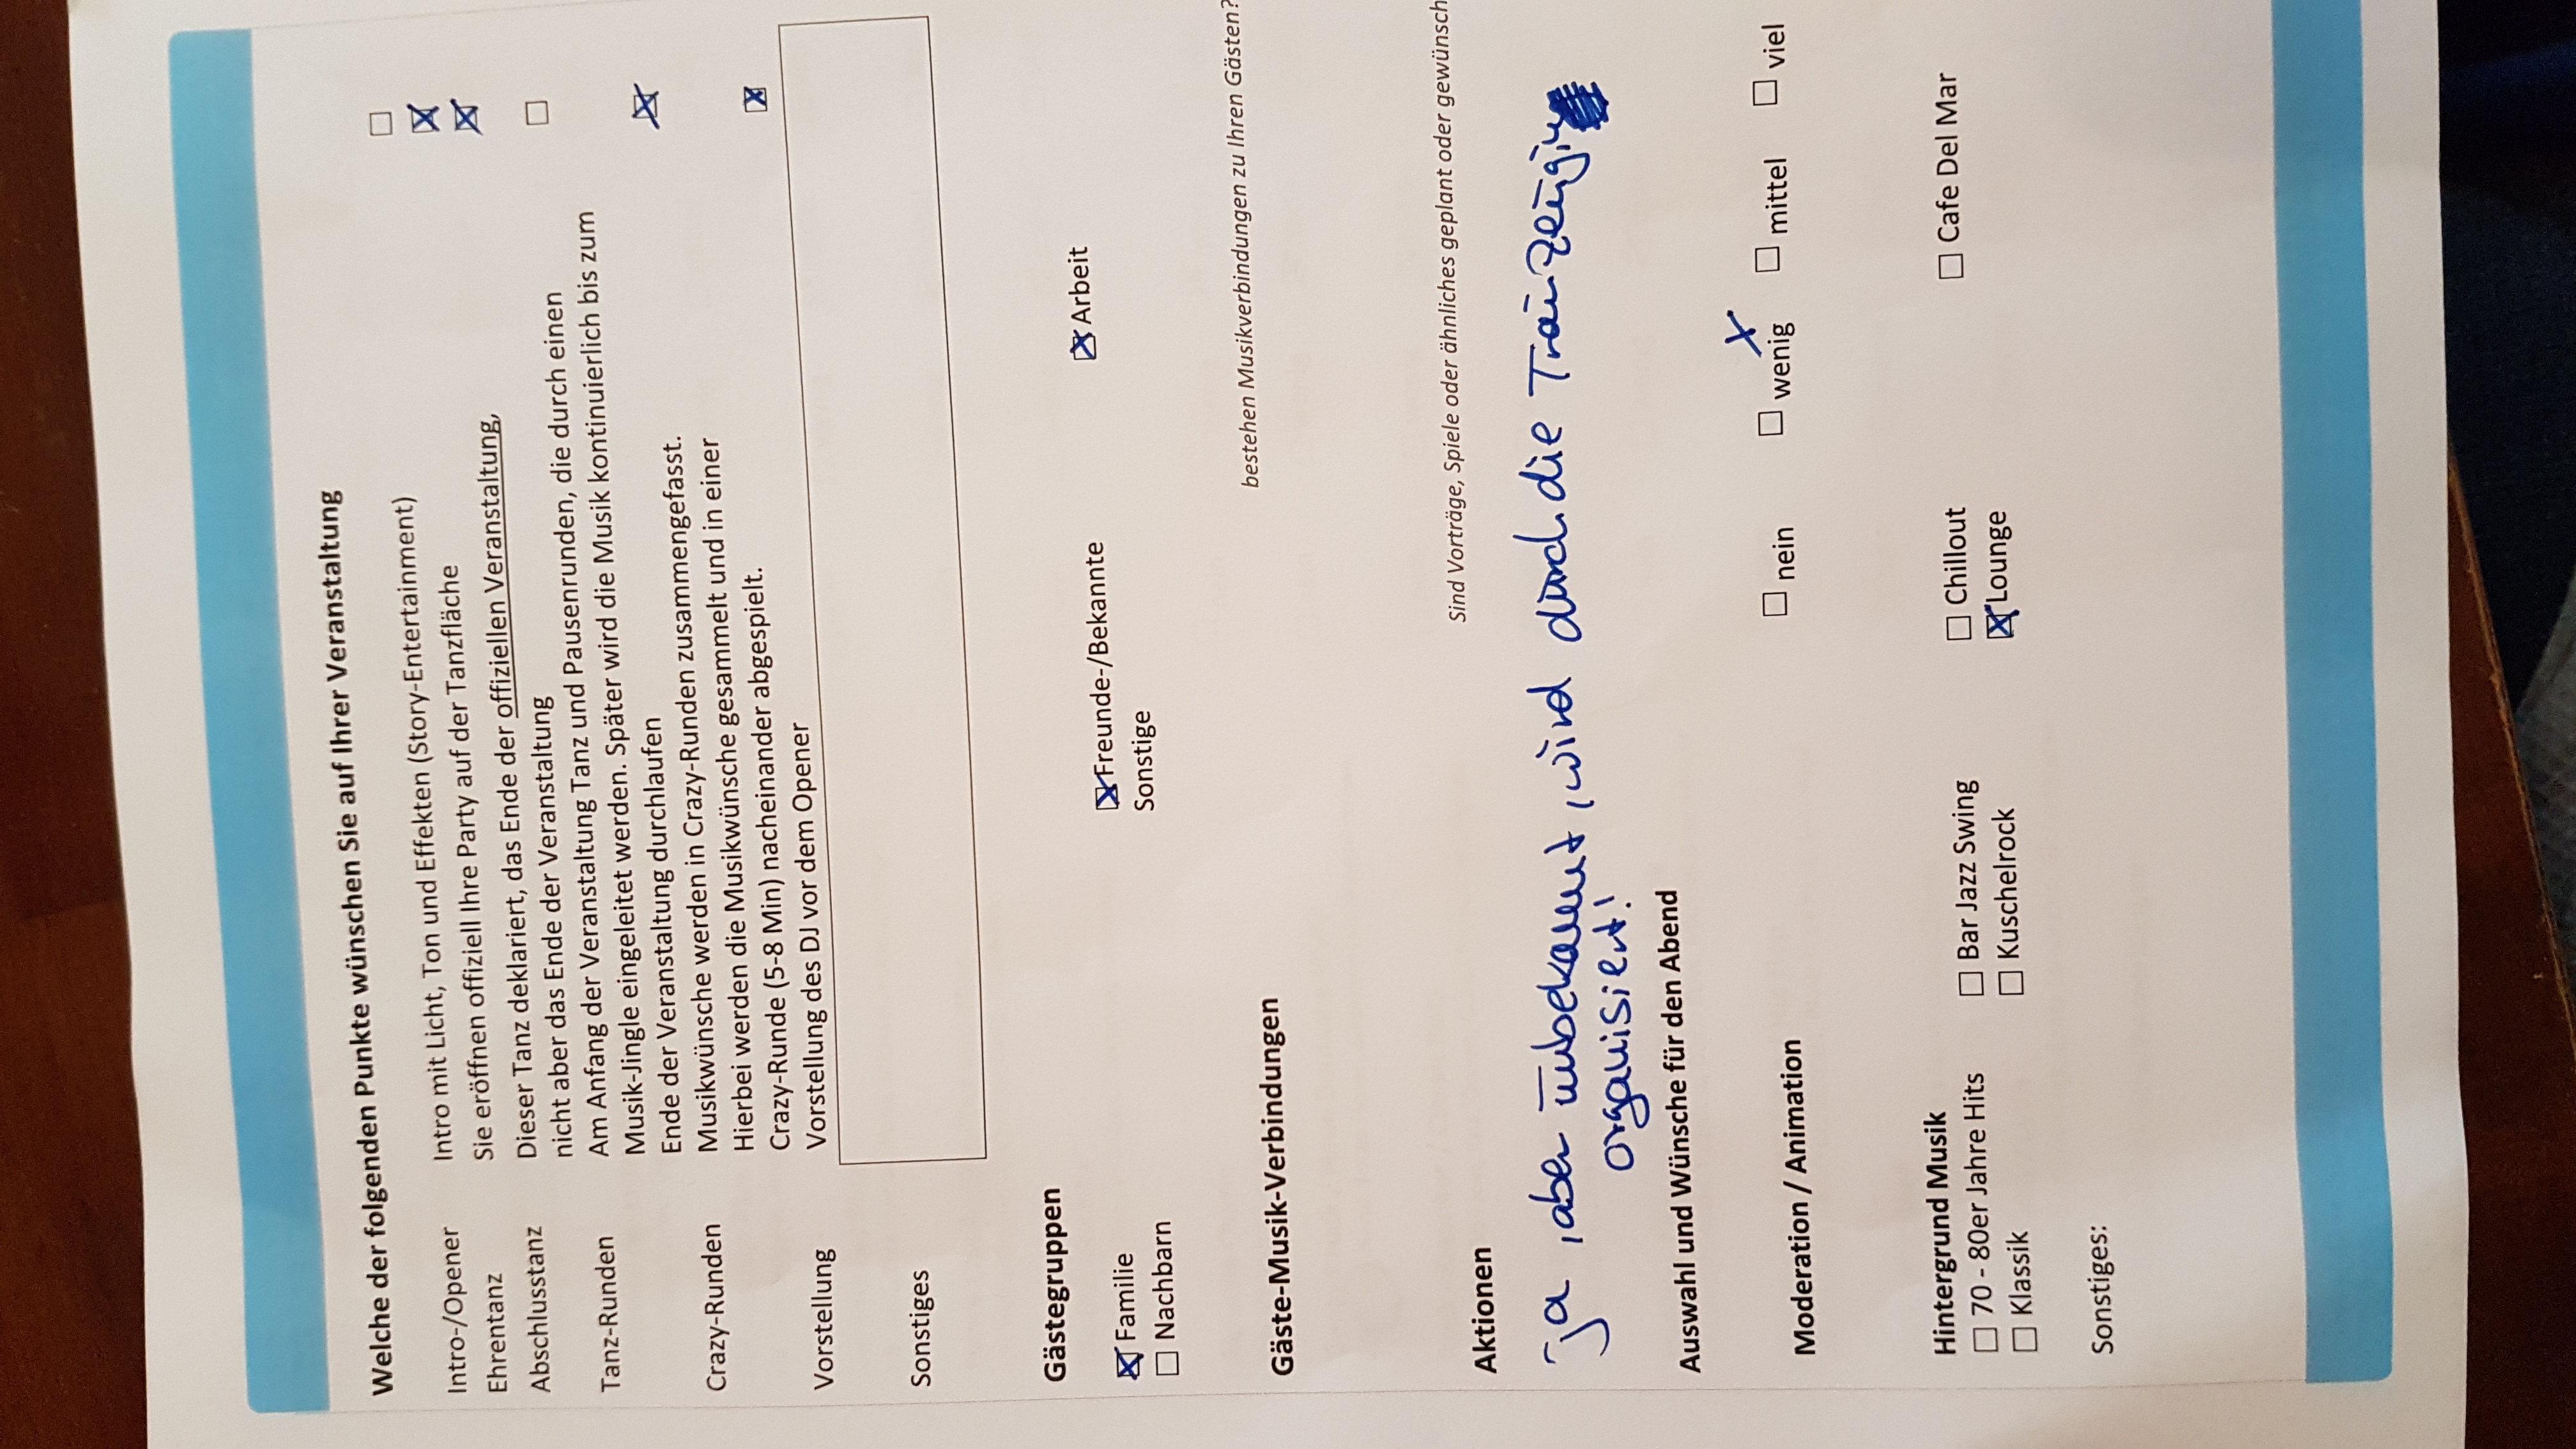 Welche der folgenden Punkte wünschen Sie auf Ihrer Veranstaltung
Intro-/Opener Intro mit Licht, Ton und Effekten (Story-Entertainment) ☐
Ehrentanz Sie eröffnen offiziell Ihre Party auf der Tanzfläche ☒
Abschlusstanz Dieser Tanz deklariert, das Ende der offiziellen Veranstaltung, ☒
nicht aber das Ende der Veranstaltung
Tanz-Runden Am Anfang der Veranstaltung Tanz und Pausenrunden, die durch einen ☐
Musik-Jingle eingeleitet werden. Später wird die Musik kontinuierlich bis zum
Ende der Veranstaltung durchlaufen
Crazy-Runden Musikwünsche werden in Crazy-Runden zusammengefasst. ☒
Hierbei werden die Musikwünsche gesammelt und in einer
Crazy-Runde (5-8 Min) nacheinander abgespielt.
Vorstellung Vorstellung des DJ vor dem Opener ☒
Sonstiges
Gästegruppen
☒ Familie ☒ Freunde-/Bekannte ☒ Arbeit
☐ Nachbarn Sonstige
Gäste-Musik-Verbindungen bestehen Musikverbindungen zu Ihren Gästen?
Aktionen Sind Vorträge, Spiele oder ähnliches geplant oder gewünsch
ja, aber unbekannt, wird durch die Trauzeugin
organisiert!
Auswahl und Wünsche für den Abend
Moderation / Animation ☐ nein ☐ wenig X ☐ mittel ☐ viel
Hintergrund Musik
☐ 70 - 80er Jahre Hits ☐ Bar Jazz Swing ☐ Chillout ☐ Cafe Del Mar
☐ Klassik ☐ Kuschelrock ☒ Lounge
Sonstiges: